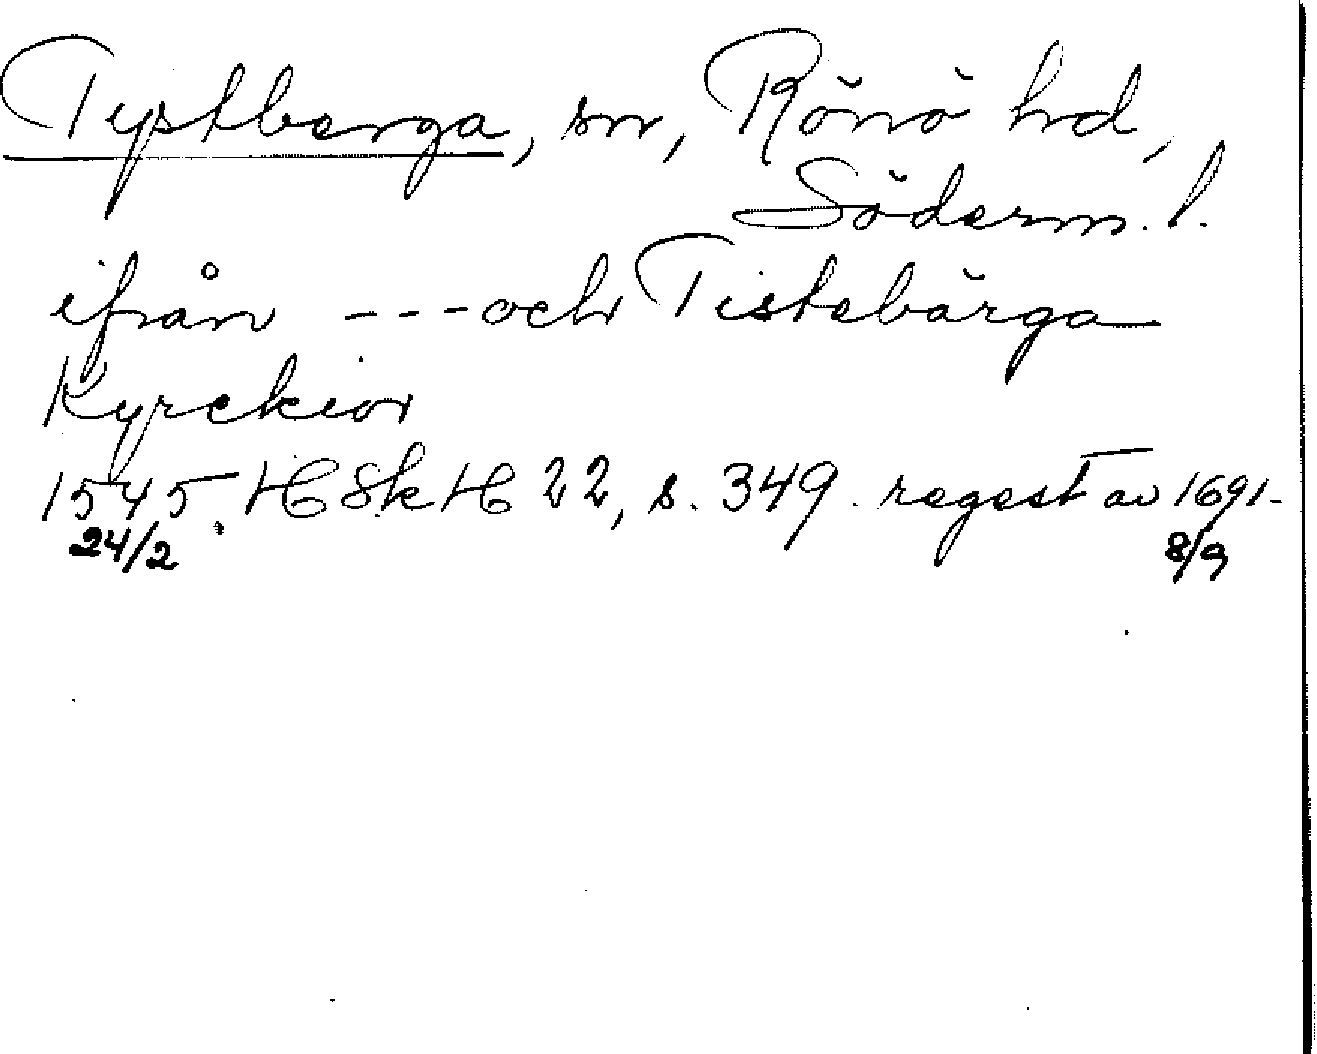 Tystberga, sn, Rönö hd,
Söderm. l.
ifrån --- och Tistebärga
Kyrckior
1545 HSkH 22, s. 349. regest av 1691-
24/2 8/9